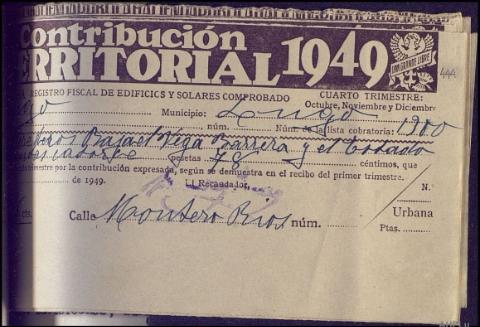 Contribución
TERRITORIAL 1949
UNA GRANDE LIBRE
444
REGISTRO FISCAL DE EDIFICS Y SOLARES COMPROBADO
CUARTO TRIMESTRE:
Octubre, Noviembre y Diciembre
Lugo Municipio: Lugo
núm. Núm. de la lista cobratoria: 1900
Rafael Vega Barrera y el Estado
pesetas 78 céntimos, que
trimestre por la contribución expresada, según se demuestra en el recibo del primer trimestre.
de 1949. El Recaudador,
N.º
Calle Montero Rios núm. Urbana
Ptas.